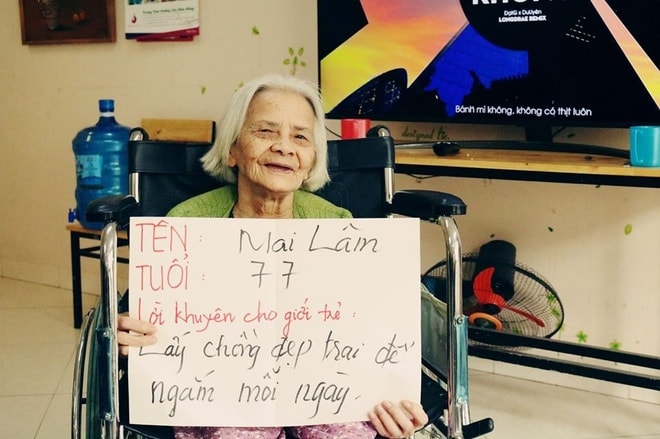 KHÔNG
DatG x DuUyên
LONGDRAE REMIX
Bánh mì không, không có thịt luôn
TÊN : Mai Lâm
TUỔI : 77
Lời khuyên cho giới trẻ :
Lấy chồng đẹp trai để
ngắm mỗi ngày.